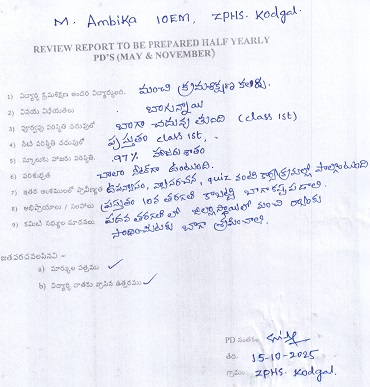 M. Ambika 10EM, ZPHS. Kodgal.
REVIEW REPORT TO BE PREPARED HALF YEARLY
PD'S (MAY & NOVEMBER)
1) విద్యార్థి క్రమశిక్షణ అందరి విద్యార్థులకు. మంచి క్రమశిక్షణ కలదు.
2) వినయ విధేయతలు . బాగున్నాయి
3) పూర్వపు పరిస్థితి చదువులో బాగా చదువు తుంది (class 1st)
4) నేటి పరిస్థితి చదువులో ప్రస్తుతం class 1st,
5) స్కూలుకు హాజరు పరిస్థితి. .97% హాజరు శాతం
6) పరిశుభ్రత చాలా నీట్‌గా ఉంటుంది.
7) ఇతర అంశములలో ప్రావీణ్యత ఉపన్యాసం, వ్యాసరచన, quiz వంటి కార్యక్రమాల్లో పాల్గొంటుంది
8) అభిప్రాయాలు / సలహాలు ప్రస్తుతం 10వ తరగతి కాబట్టి బాగా కష్టపడాలి.
9) కమిటీ సభ్యుల సూచనలు పదవ తరగతి లో జిల్లాస్థాయిలో మంచి ర్యాంకు
సాధించుటకు బాగా శ్రమించాలి.
జతపరచవలసినవి –
a) మార్కుల పత్రము ✓
b) విద్యార్థి దాతకు వ్రాసిన ఉత్తరము ✓
PD సంతకం
తేది. 15-10-2025
గ్రామం. ZPHS. Kodgal.